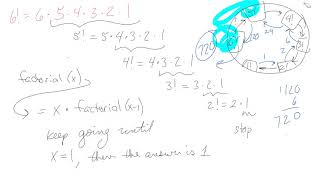 6! = 6 · 5 · 4 · 3 · 2 · 1
5! = 5 · 4 · 3 · 2 · 1
4! = 4 · 3 · 2 · 1
3! = 3 · 2 · 1
2! = 2 · 1
factorial (x)
= x · factorial (x-1)
keep going until
x = 1, then the answer is 1
stop
720
24
6
2
1
120
6
720